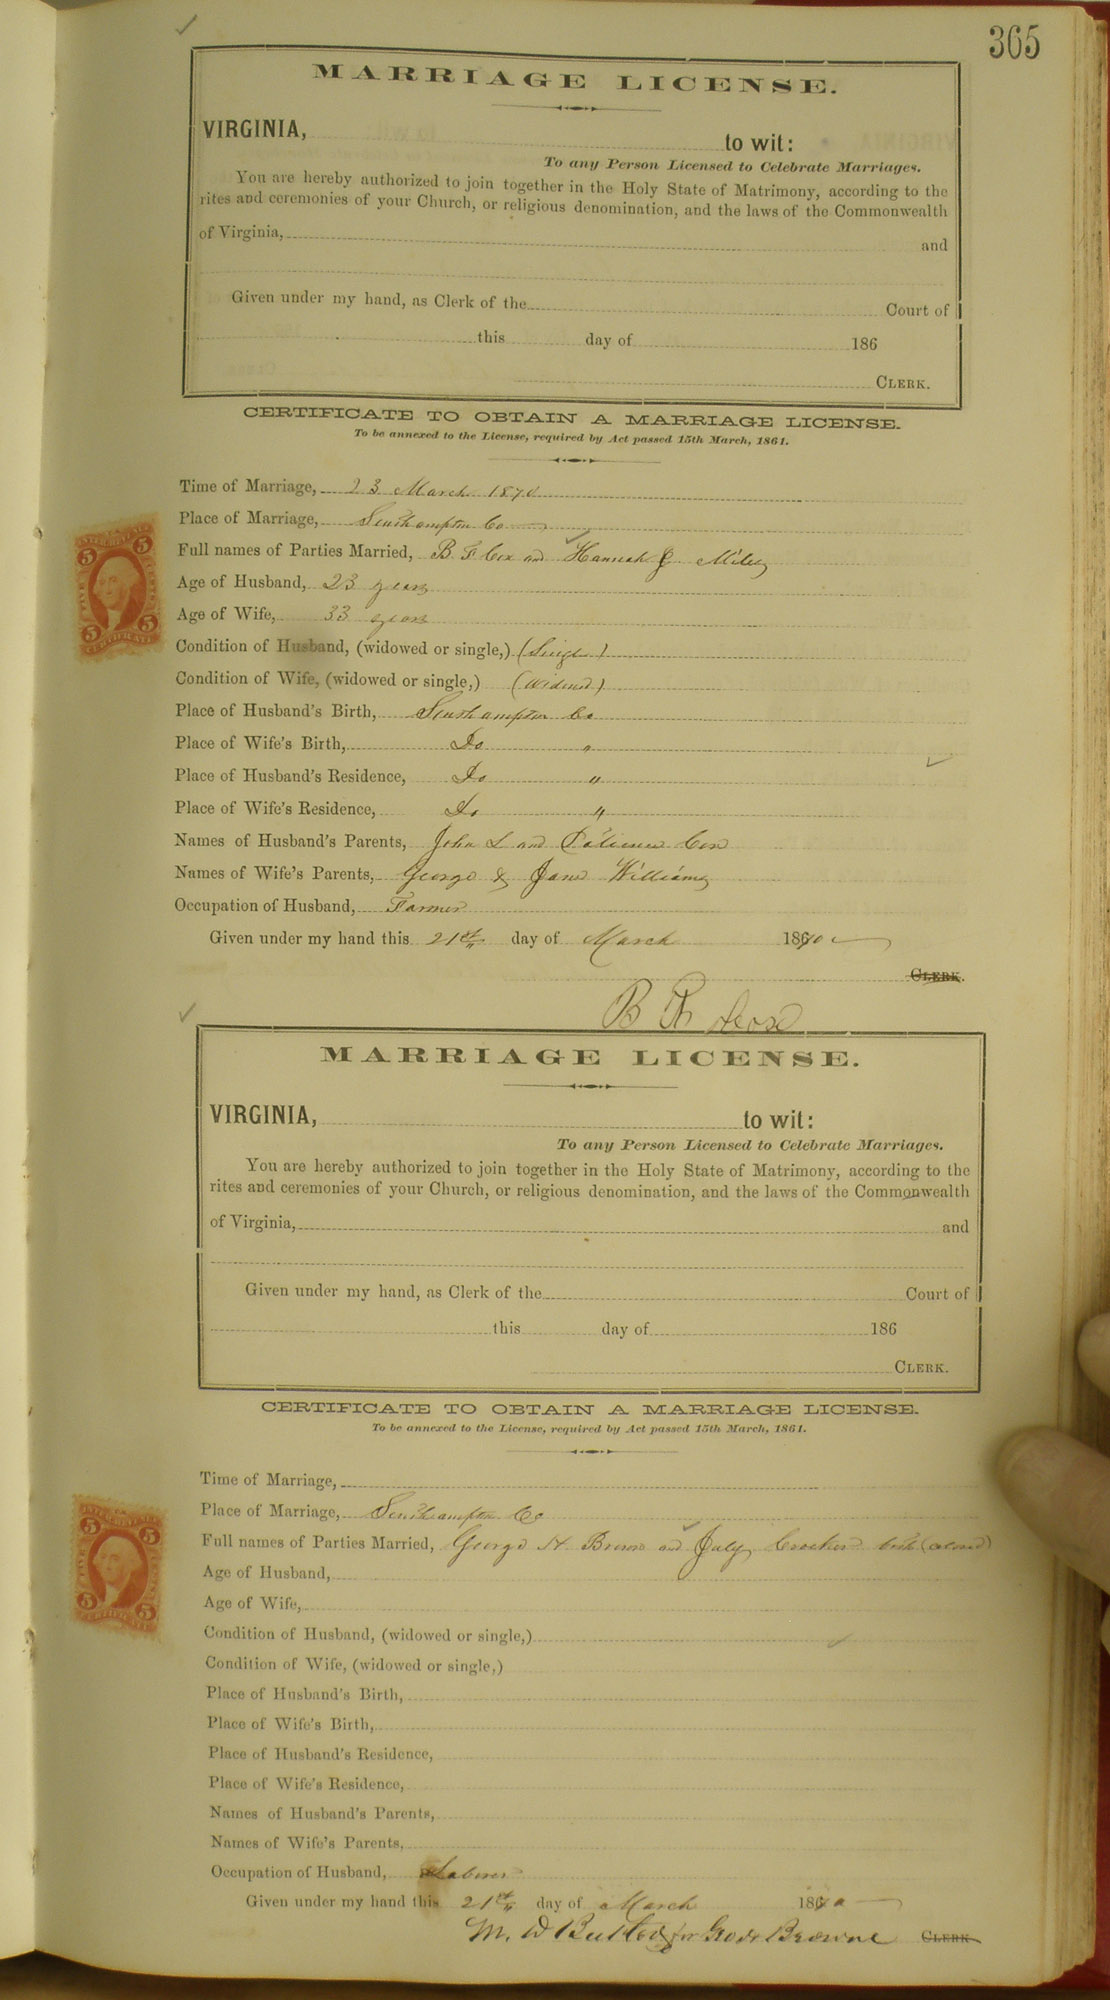 365
MARRIAGE LICENSE.
VIRGINIA, to wit:
To any Person Licensed to Celebrate Marriages.
You are hereby authorized to join together in the Holy State of Matrimony, according to the
rites and ceremonies of your Church, or religious denomination, and the laws of the Commonwealth
of Virginia, and
Given under my hand, as Clerk of the Court of
this day of 186
CLERK.
CERTIFICATE TO OBTAIN A MARRIAGE LICENSE.
To be annexed to the License, required by Act passed 15th March, 1861.
Time of Marriage, 23 March 1870
Place of Marriage, Southampton Co
Full names of Parties Married, B F Cox and Hannah J Miles
Age of Husband, 23 years
Age of Wife, 33 years
Condition of Husband, (widowed or single,) (Single)
Condition of Wife, (widowed or single,) (Widowed)
Place of Husband's Birth, Southampton Co
Place of Wife's Birth, Do "
Place of Husband's Residence, Do "
Place of Wife's Residence, Do "
Names of Husband's Parents, John L and Patience Cox
Names of Wife's Parents, George & Jane Williams
Occupation of Husband, Farmer
Given under my hand this 21st day of March 1870
CLERK.
B F Cox
MARRIAGE LICENSE.
VIRGINIA, to wit:
To any Person Licensed to Celebrate Marriages.
You are hereby authorized to join together in the Holy State of Matrimony, according to the
rites and ceremonies of your Church, or religious denomination, and the laws of the Commonwealth
of Virginia, and
Given under my hand, as Clerk of the Court of
this day of 186
CLERK.
CERTIFICATE TO OBTAIN A MARRIAGE LICENSE.
To be annexed to the License, required by Act passed 15th March, 1861.
Time of Marriage,
Place of Marriage, Southampton Co
Full names of Parties Married, George H Brown and July Crocker both (colored)
Age of Husband,
Age of Wife,
Condition of Husband, (widowed or single,)
Condition of Wife, (widowed or single,)
Place of Husband's Birth,
Place of Wife's Birth,
Place of Husband's Residence,
Place of Wife's Residence,
Names of Husband's Parents,
Names of Wife's Parents,
Occupation of Husband, Laborer
Given under my hand this 21st day of March 1870
M. D for Geo H Browne CLERK